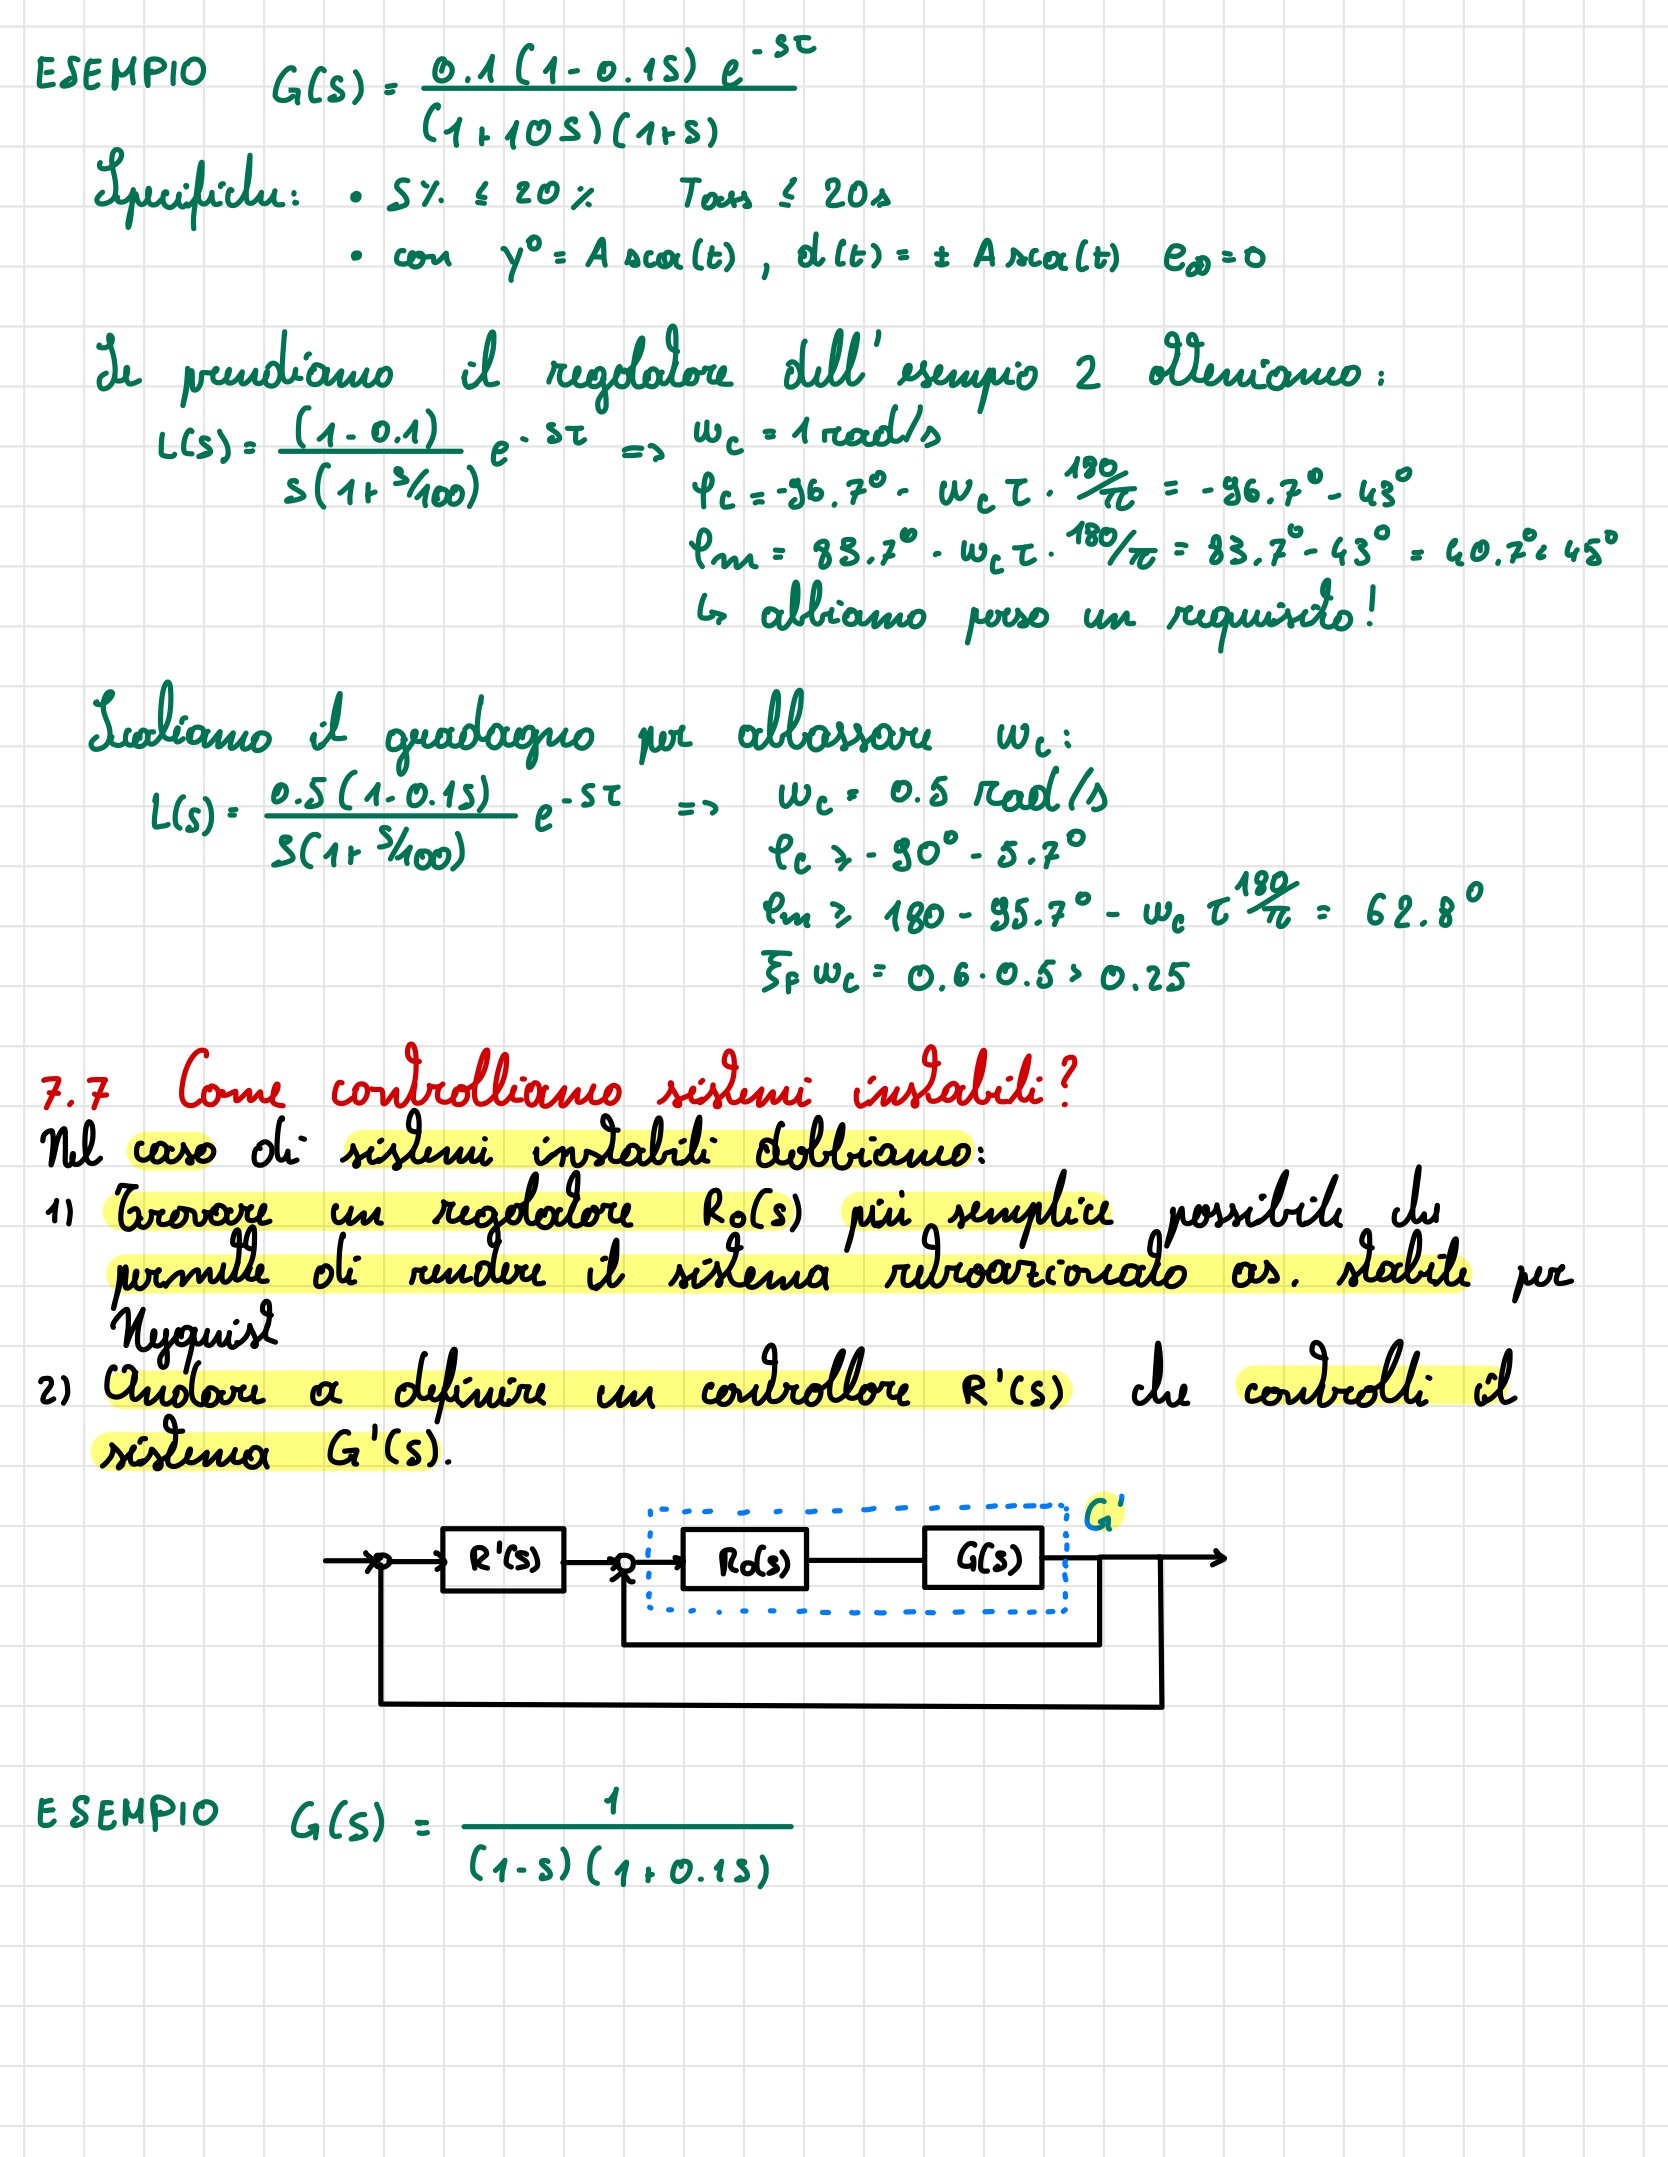 ESEMPIO G(s) = 0.1 (1-0.1s) e^-sτ / (1+10s)(1+s)
Specifiche: • S% ≤ 20% Tass ≤ 20s
• con y° = A sca(t), d(t) = ± A sca(t) e∞ = 0
Se prendiamo il regolatore dell'esempio 2 otteniamo:
L(s) = (1-0.1) / s(1+s/100) e^-sτ => ωc = 1 rad/s
φc = -96.7° - ωc τ · 180/π = -96.7° - 43°
φm = 83.7° - ωc τ · 180/π = 83.7° - 43° = 40.7° < 45°
↳ abbiamo perso un requisito!
Scaliamo il guadagno per abbassare ωc:
L(s) = 0.5 (1-0.1s) / s(1+s/100) e^-sτ => ωc = 0.5 rad/s
φc ≥ -90° - 5.7°
φm ≥ 180 - 95.7° - ωc τ 180/π = 62.8°
ξF ωc = 0.6 · 0.5 > 0.25
7.7 Come controlliamo sistemi instabili?
Nel caso di sistemi instabili dobbiamo:
1) Trovare un regolatore Ro(s) più semplice possibile che
permette di rendere il sistema retroazionato as. stabile per
Nyquist
2) Andare a definire un controllore R'(s) che controlli il
sistema G'(s).
G'
R'(s) Ro(s) G(s)
ESEMPIO G(s) = 1 / (1-s)(1+0.1s)